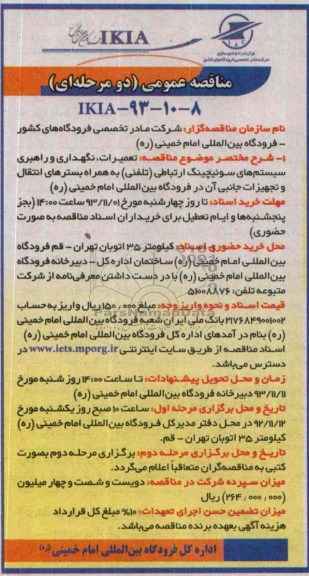 IKIA
مناقصه عمومی (دو مرحله‌ای)
IKIA-۹۳-۱۰-۸
نام سازمان مناقصه‌گزار: شرکت مادر تخصصی فرودگاه‌های کشور
- فرودگاه بین‌المللی امام خمینی (ره)
۱- شرح مختصر موضوع مناقصه: تعمیرات، نگهداری و راهبری
سیستم‌های سوئیچینگ ارتباطی (تلفنی) به همراه بسترهای انتقال
و تجهیزات جانبی آن در فرودگاه بین‌المللی امام خمینی (ره)
مهلت خرید اسناد: تا روز چهارشنبه مورخ ۹۳/۱۱/۰۱ ساعت ۱۴:۰۰ (بجز
پنجشنبه‌ها و ایام تعطیل برای خریداران اسناد مناقصه به صورت
حضوری)
محل خرید حضوری اسناد: کیلومتر ۳۵ اتوبان تهران - قم فرودگاه
بین‌المللی امام خمینی (ره) ساختمان اداره کل - دبیرخانه فرودگاه
بین‌المللی امام خمینی (ره) با در دست داشتن معرفی‌نامه از شرکت
متبوعه تلفن: ۵۱۰۰۸۸۷۶
قیمت اسناد و نحوه واریز وجه: مبلغ ۱۵۰٫۰۰۰ ریال واریز به حساب
۲۱۷۶۸۴۹۰۰۱۰۰۲ بانک ملی ایران شعبه فرودگاه بین‌المللی امام خمینی
(ره) بنام درآمدهای اداره کل فرودگاه بین‌المللی امام خمینی (ره)
اسناد مناقصه از طریق سایت اینترنتی www.iets.mporg.ir در
دسترس می‌باشد.
زمان و محل تحویل پیشنهادات: تا ساعت ۱۴:۰۰ روز شنبه مورخ
۹۳/۱۱/۱۱ دبیرخانه فرودگاه بین‌المللی امام خمینی (ره)
تاریخ و محل برگزاری مرحله اول: ساعت ۱۰ صبح روز یکشنبه مورخ
۹۲/۱۱/۱۲ در محل دفتر مدیرکل فرودگاه بین‌المللی امام خمینی (ره)
کیلومتر ۳۵ اتوبان تهران - قم.
تاریخ و محل برگزاری مرحله دوم: برگزاری مرحله دوم بصورت
کتبی به مناقصه‌گران متعاقباً اعلام می‌گردد.
میزان سپرده شرکت در مناقصه: دویست و شصت و چهار میلیون
(۲۶۴٫۰۰۰٫۰۰۰) ریال
میزان تضمین حسن اجرای تعهدات: ۱۰% مبلغ کل قرارداد
هزینه آگهی بعهده برنده مناقصه می‌باشد.
اداره کل فرودگاه بین‌المللی امام خمینی (ره)